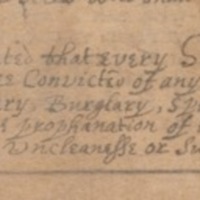 ted that every S
re Convicted of any
ry, Burglary, Sp
prophanation of
Uncleanesse or Su